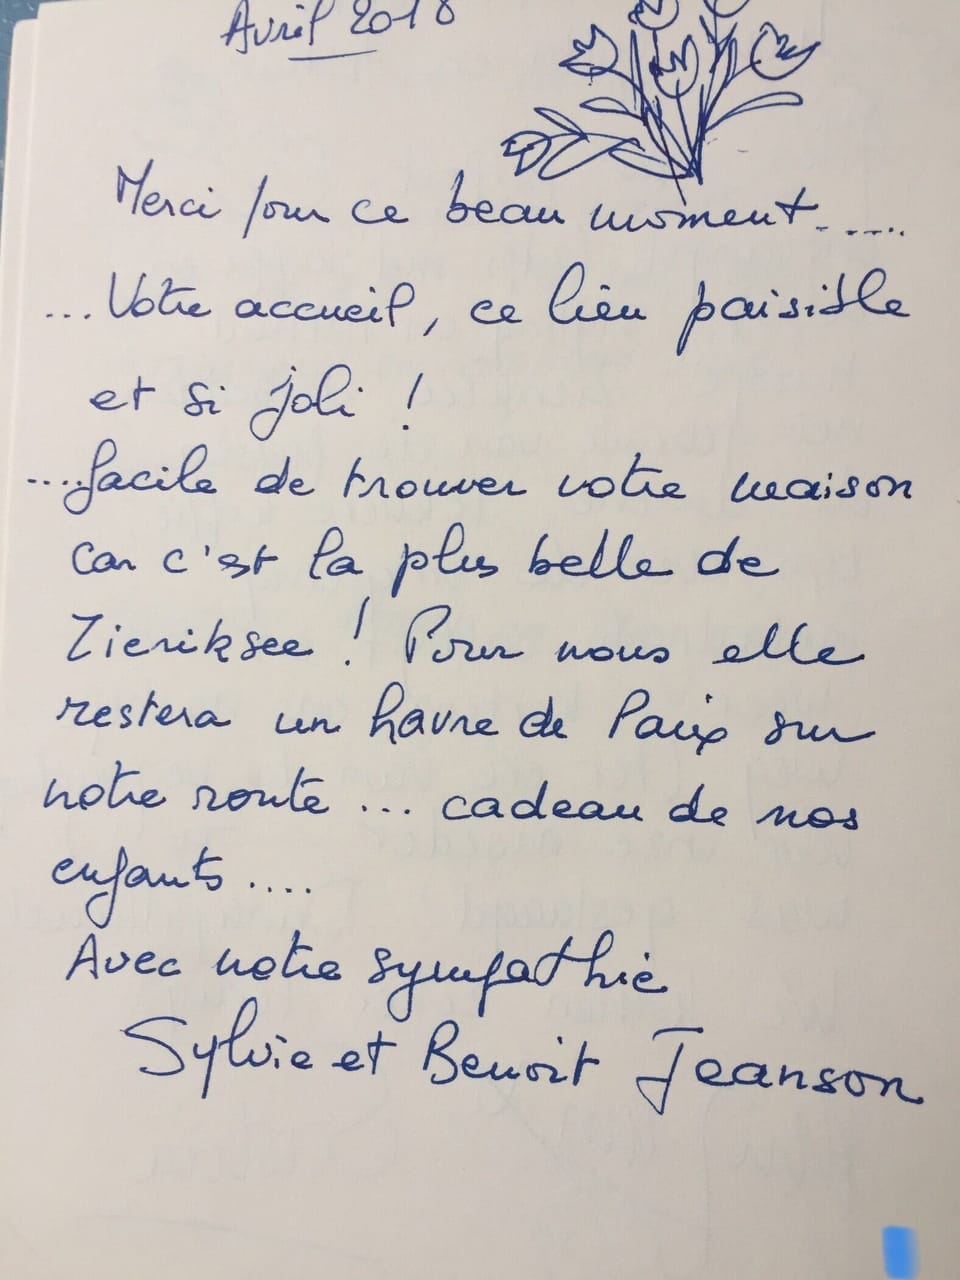 Avril 2018
Merci pour ce beau moment.......
...Votre accueil, ce lieu paisible
et si joli !
....facile de trouver votre maison
car c'est la plus belle de
Zieriksee ! Pour nous elle
restera un havre de Paix sur
notre route ... cadeau de nos
enfants....
Avec notre sympathie
Sylvie et Benoit Jeanson